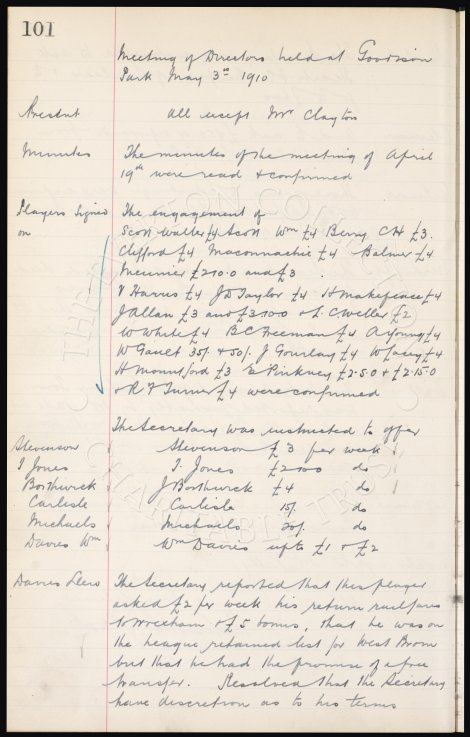 101
Meeting of Directors held at Goodison
Park May 3rd 1910
Present All except Mr Clayton
Minutes The minutes of the meeting of April
19th were read & confirmed
Players Signed The engagement of
on Scott Walter £4 Scott Wm £4 Berry CH £3.
Clifford £4 Maconnachie £4 Balmer £4
Meunier £2.10.0 and £3
V Harris £4 J D Taylor £4 H Makepeace £4
J Allan £3 and £3.10.0 & L. C Weller £2
W White £4 B C Freeman £4 A Young £4
W Gault 35/. & 50/. J Gourlay £4 W Lacey £4
H Mountford £3 E Pinkney £2.5.0 & £2.15.0
& R F Turner £4 were confirmed
The Secretary was instructed to offer
Stevenson Stevenson £3 per week
T Jones T. Jones £2.10.0 do
Borthwick J Borthwick £4 do
Carlisle Carlisle 15/. do
Michaels Michaels 20/. do
Davies Wm Wm Davies up to £1 & £2
Davies Llew The Secretary reported that this player
asked £2 per week his return railfare
to Wrexham & £5 bonus, that he was on
the League retained list for West Brom
but that he had the promise of a free
transfer. Resolved that the Secretary
have discretion as to his terms
THE EVERTON COLLECTION
CHARITABLE TRUST